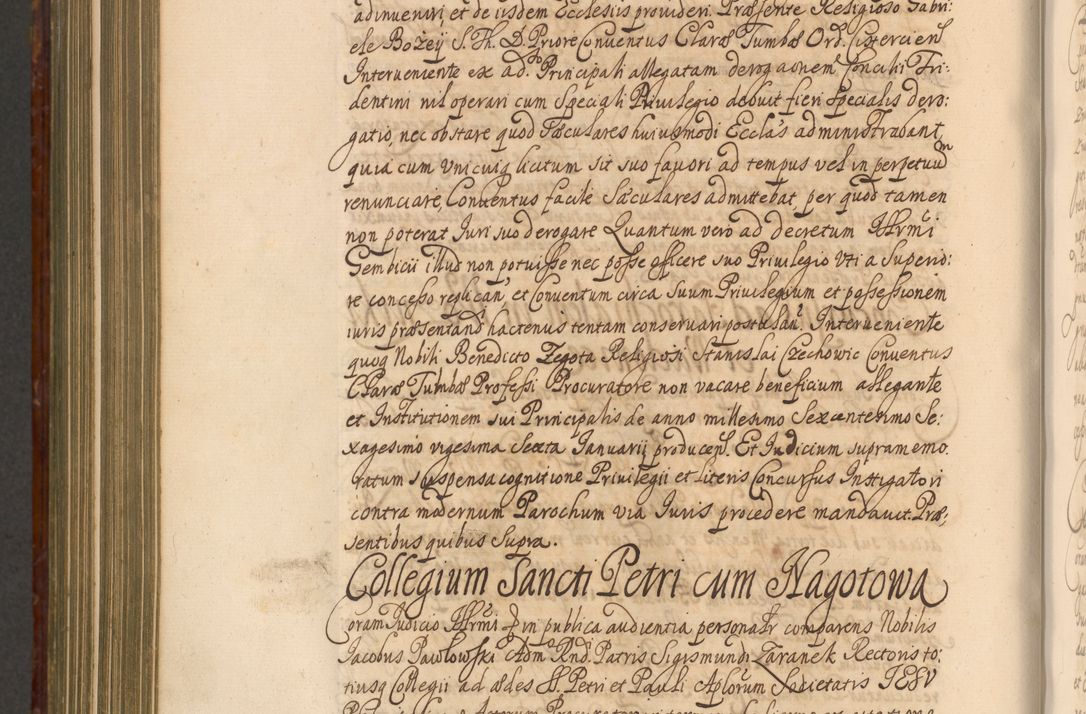 adinveniri, et de iisdem Ecclesiis provideri. Præsente Religioso Gabri:
ele Bożey S. Th. D. Priore Conventus Claræ Tumbæ Ord. Cistercien
Interveniente ex ad. Principali allegatam derogaonem Concilii Tri:
dentini nil operari cum Speciali Privilegio debuit fieri specialis dero:
gatio, nec obstare quod Sæculares huiusmodi Ecclas administrabant,
quia cum unicuiq licitum sit suo favori ad tempus vel in perpetuum
renunciare, Conventus facile Sæculares admittebat, per quod tamen
non poterat Juri suo derogare Quantum vero ad decretum Illrmi
Gembicii illud non potuisse nec posse officere suo Privilegio uti a Superio:
re concesso replican, et Conventum circa suum Privilegium et possessionem
iuris præsentandi hactenus tentam conservari postulan. Interveniente
quoq Nobili Benedicto Zegota Religiosi Stanislai Czechowic Conventus
Claræ Tumbæ Professi Procuratore non vacare beneficium allegante
et Institutionem sui Principalis de anno millesimo Sexcentesimo Se:
xagesimo vigesima Sexta Januarii producen. Et Judicium supramemo
ratum suspensa cognitione Privilegii et literis Concursus Instigatori
contra modernum Parochum via Juris procedere mandavit. Præ,
sentibus quibus supra.
Collegium Sancti Petri cum Nagotowa
Coram Judicio Illrmi in publica audientia personalr comparens Nobilis
Jacobus Pawlowski Adm Rnd. Patris Sigismundi Zaranek Rectoris to:
tiusq Collegii ad ædes S. Petri et Pauli Aplorum Societatis IESV